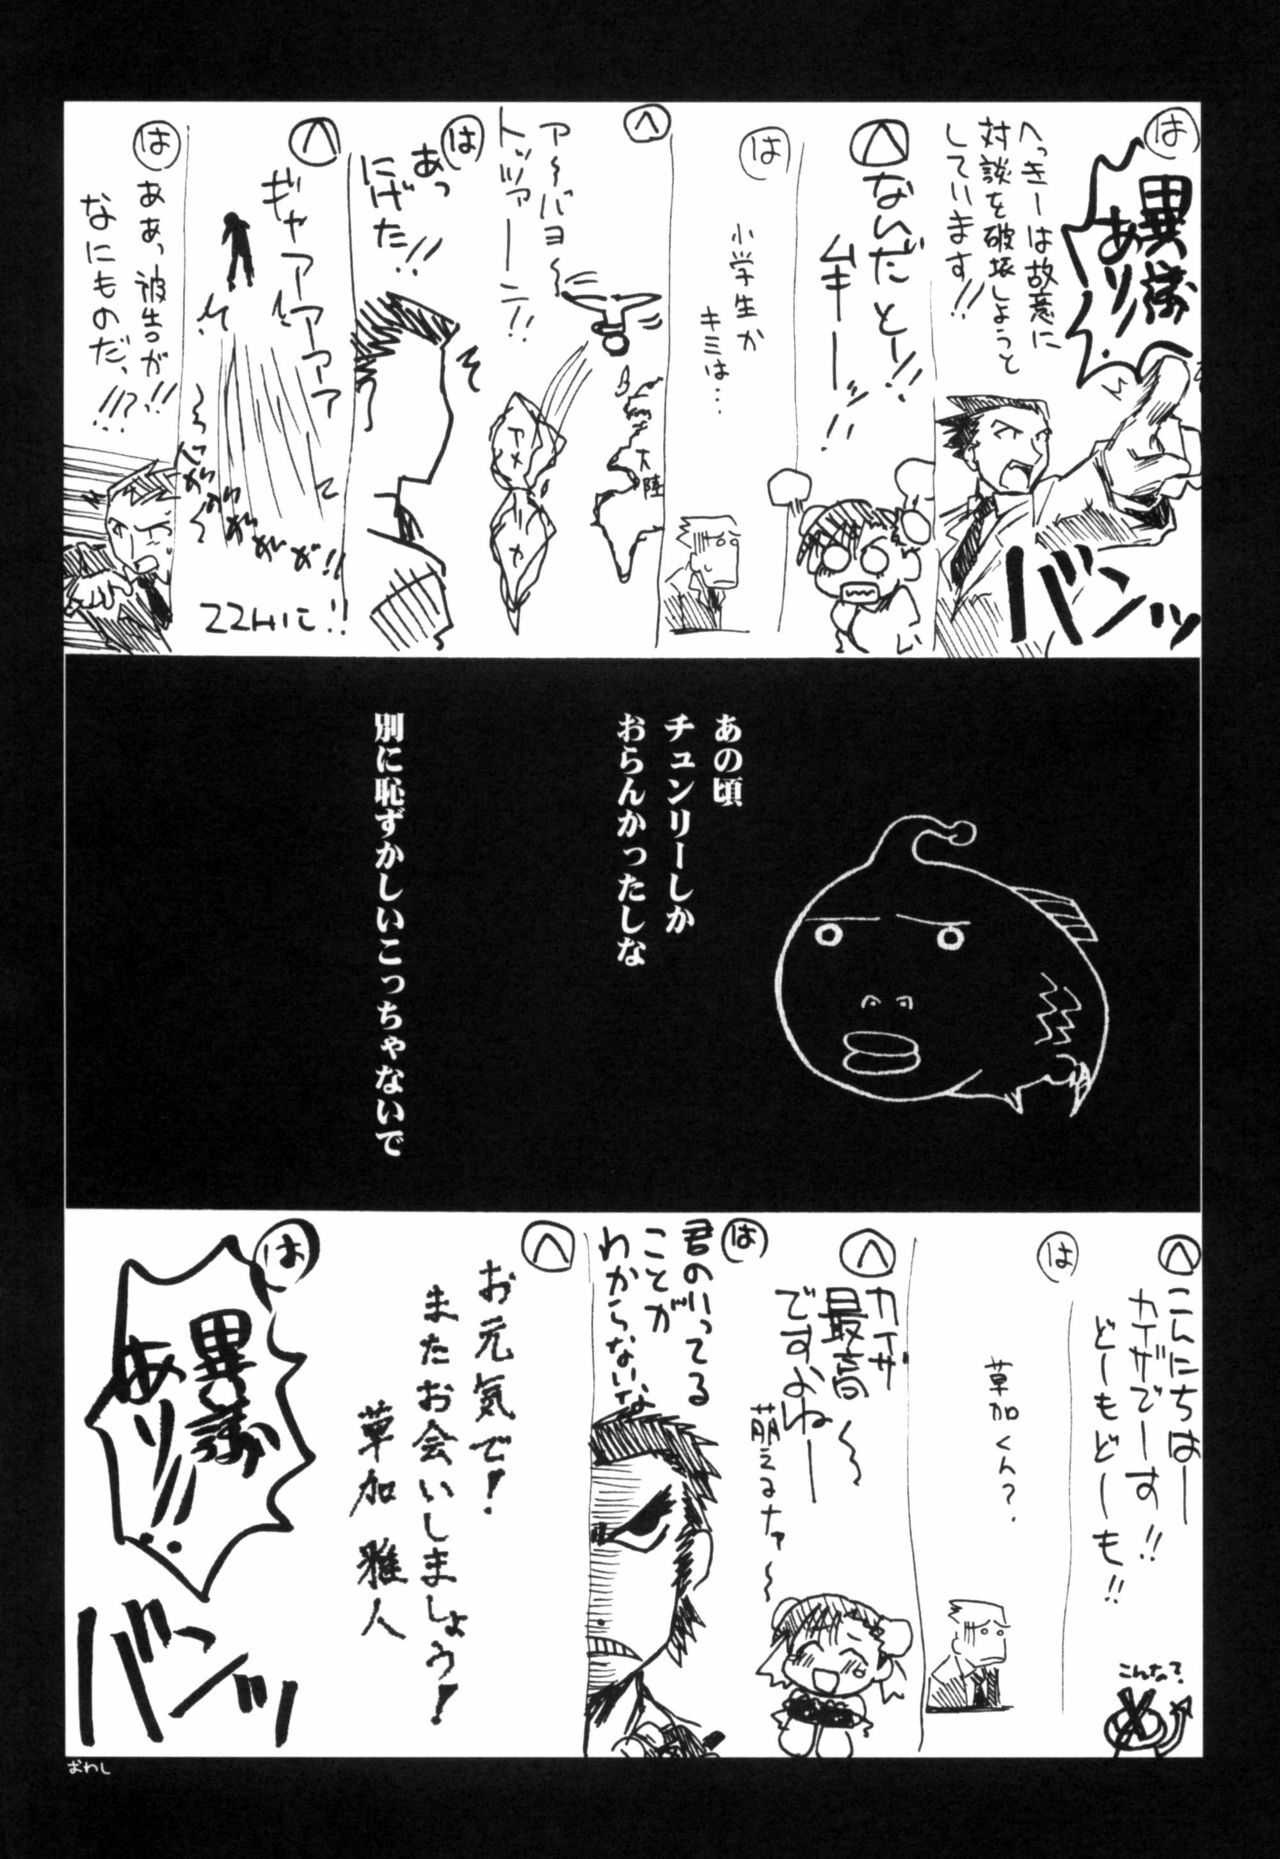 は
異議
あり!!
へっきーは故意に
対談を破壊しようと
しています!!
バンッ
へ
ないだとー!!
ムキーーッ!!
は
小学生か
キミは…
へ
アーバヨ〜
トッツァーーン!!
大陸
アメ
は
あっ
にげた!!
へ
ギャアアアアア
22Hに!!
は
ああっ被告が!!
なにものだっ!!?
あの頃
チュンリーしか
おらんかったしな
別に恥ずかしいこっちゃないで
へ
こんにちはー
カイザでーす!!
どーもどーも!!
こんなって?
は
草加くん?
へ
カイザ
最高〜
ですよねー
萌えるナァ〜
は
君のいってる
ことが
わからないな
へ
お元気で!
またお会いしましょう!
草加雅人
は
異議
あり!!
バンッ
おわし